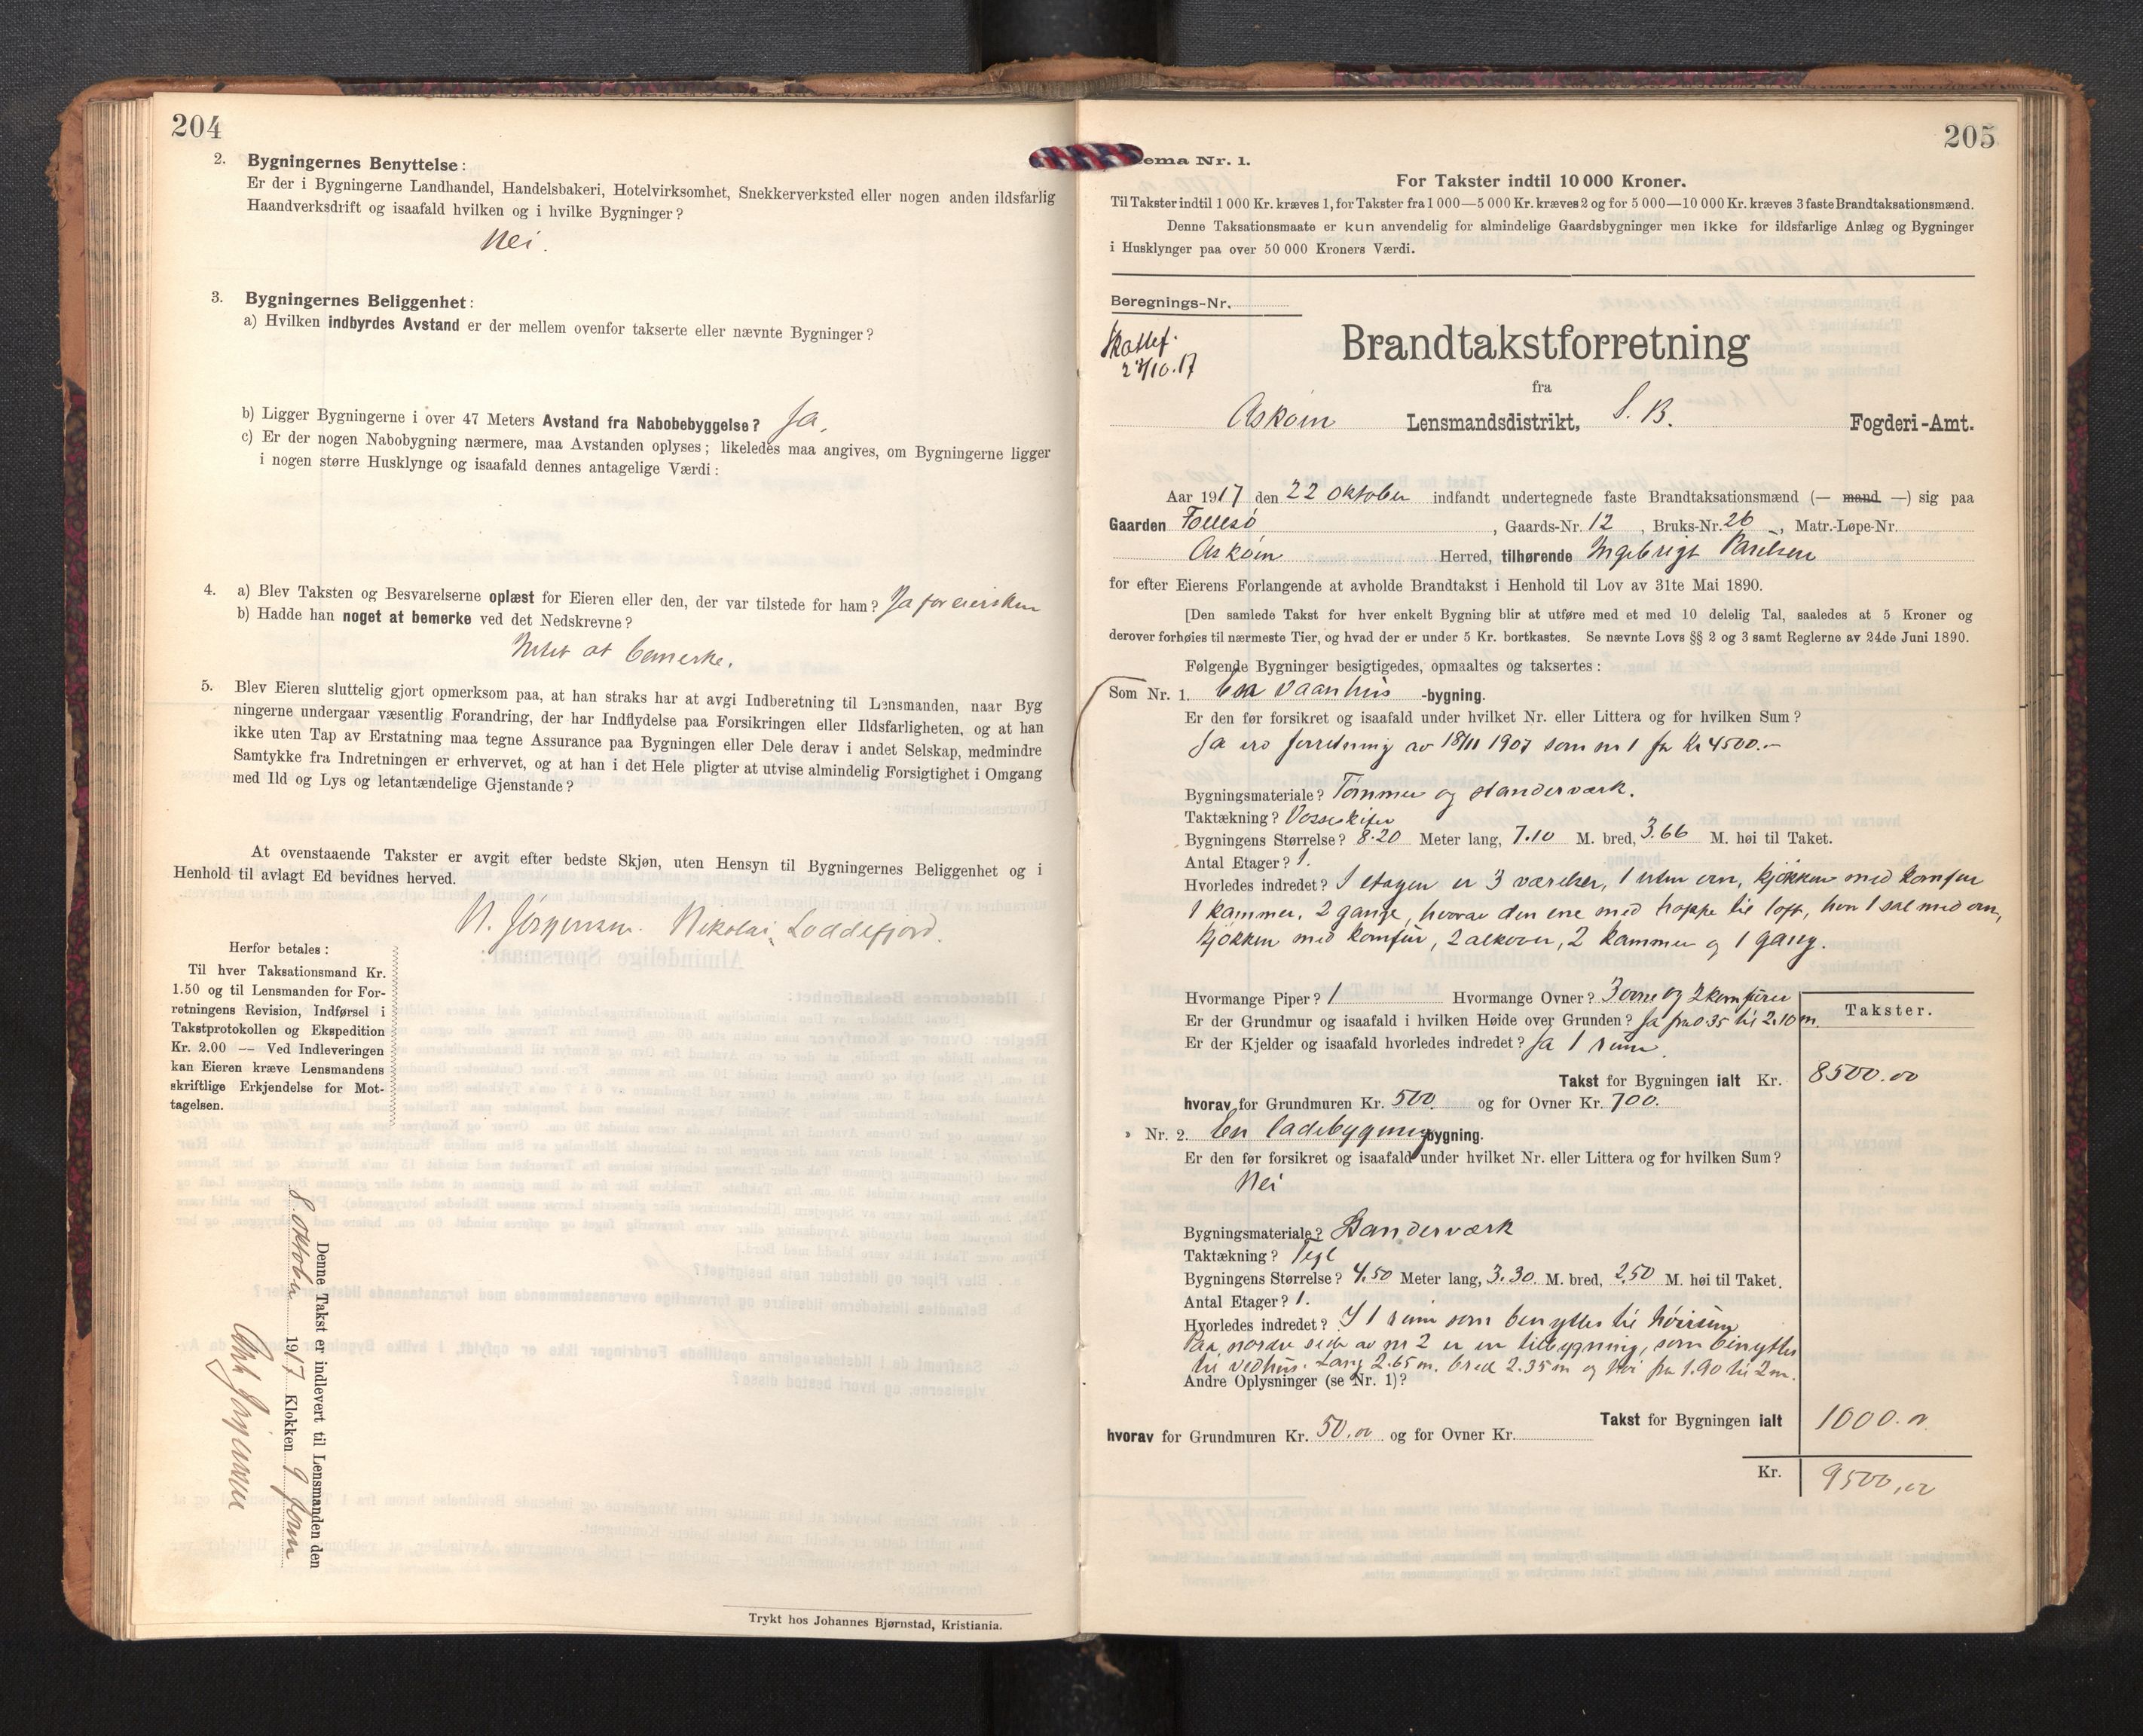 204
2. Bygningernes Benyttelse:
Er der i Bygningerne Landhandel, Handelsbakeri, Hotelvirksomhet, Snekkerverksted eller nogen anden ildsfarlig
Haandverksdrift og isaafald hvilken og i hvilke Bygninger?
Nei.
3. Bygningernes Beliggenhet:
a) Hvilken indbyrdes Avstand er der mellem ovenfor takserte eller nævnte Bygninger?
b) Ligger Bygningerne i over 47 Meters Avstand fra Nabobebyggelse? Ja.
c) Er der nogen Nabobygning nærmere, maa Avstanden oplyses; likeledes maa angives, om Bygningerne ligger
i nogen større Husklynge og isaafald dennes antagelige Værdi:
4. a) Blev Taksten og Besvarelserne oplæst for Eieren eller den, der var tilstede for ham? Ja for eiersken
b) Hadde han noget at bemerke ved det Nedskrevne?
Intet at bemerke.
5. Blev Eieren sluttelig gjort opmerksom paa, at han straks har at avgi Indberetning til Lensmanden, naar Byg
ningerne undergaar væsentlig Forandring, der har Indflydelse paa Forsikringen eller Ildsfarligheten, og at han
ikke uten Tap av Erstatning maa tegne Assurance paa Bygningen eller Dele derav i andet Selskap, medmindre
Samtykke fra Indretningen er erhvervet, og at han i det Hele pligter at utvise almindelig Forsigtighet i Omgang
med Ild og Lys og letantændelige Gjenstande?
At ovenstaaende Takster er avgit efter bedste Skjøn, uten Hensyn til Bygningernes Beliggenhet og i
Henhold til avlagt Ed bevidnes herved.
N. Jørgensen. Nikolai Loddefjord.
Herfor betales:
Til hver Taksationsmand Kr.
1.50 og til Lensmanden for For-
retningens Revision, Indførsel i
Takstprotokollen og Ekspedition
Kr. 2.00 — Ved Indleveringen
kan Eieren kræve Lensmandens
skriftlige Erkjendelse for Mot-
tagelsen.
Denne Takst er indlevert til Lensmanden den
8 oktober 1917 Klokken 9 form
Jørgensen
Trykt hos Johannes Bjørnstad, Kristiania.
205
ema Nr. 1.
For Takster indtil 10 000 Kroner.
Til Takster indtil 1 000 Kr. kræves 1, for Takster fra 1 000—5 000 Kr. kræves 2 og for 5 000—10 000 Kr. kræves 3 faste Brandtaksationsmænd.
Denne Taksationsmaate er kun anvendelig for almindelige Gaardsbygninger men ikke for ildsfarlige Anlæg og Bygninger
i Husklynger paa over 50 000 Kroners Værdi.
Beregnings-Nr.
27/10.17
Brandtakstforretning
fra
Askøin Lensmandsdistrikt, S. B. Fogderi-Amt.
Aar 1917 den 22 oktober indfandt undertegnede faste Brandtaksationsmænd (— mand —) sig paa
Gaarden Follesø, Gaards-Nr. 12, Bruks-Nr. 26, Matr.-Løpe-Nr.
Askøin Herred, tilhørende Ingebrigt Paulsen
for efter Eierens Forlangende at avholde Brandtakst i Henhold til Lov av 31te Mai 1890.
[Den samlede Takst for hver enkelt Bygning blir at utføre med et med 10 delelig Tal, saaledes at 5 Kroner og
derover forhøies til nærmeste Tier, og hvad der er under 5 Kr. bortkastes. Se nævnte Lovs §§ 2 og 3 samt Reglerne av 24de Juni 1890.
Følgende Bygninger besigtigedes, opmaaltes og taksertes:
Som Nr. 1. En vaanhus -bygning.
Er den før forsikret og isaafald under hvilket Nr. eller Littera og for hvilken Sum?
Ja ved forretning av 18/11 1907 som nr 1 for Kr 4500.-
Bygningsmateriale? Tømmer og standerværk.
Taktækning? Vosseskifer
Bygningens Størrelse? 8.20 Meter lang, 7.10 M. bred, 3.66 M. høi til Taket.
Antal Etager? 1.
Hvorledes indredet? I etagen er 3 værelser, 1 uten ovn, kjøkken med komfur
1 kammer, 2 gange, hvorav den ene med trappe til loft, hvor 1 sal med ovn,
kjøkken med komfur, 2 alkover, 2 kammer og 1 gang.
Hvormange Piper? 1 Hvormange Ovner? 3 ovne og 2 komfurer
Er der Grundmur og isaafald i hvilken Høide over Grunden? Ja fra 0.35 til 2.10 m.
Er der Kjelder og isaafald hvorledes indredet? Ja 1 rum.
Takster.
Takst for Bygningen ialt Kr. 8500.00
hvorav for Grundmuren Kr. 500 og for Ovner Kr. 700.
» Nr. 2. En ladebygning bygning.
Er den før forsikret og isaafald under hvilket Nr. eller Littera og for hvilken Sum?
Nei
Bygningsmateriale? Standerværk
Taktækning? Tegl
Bygningens Størrelse? 4.50 Meter lang, 3.30 M. bred, 2.50 M. høi til Taket.
Antal Etager? 1.
Hvorledes indredet? I 1 rum som benyttes til høirum
Paa nordre side av nr 2 er en tilbygning, som benyttes
til vedhus. Lang 2.65 m. bred 2.35 m og høi fra 1.90 til 2 m.
Andre Oplysninger (se Nr. 1)?
Takst for Bygningen ialt 1000.00
hvorav for Grundmuren Kr. 50,00 og for Ovner Kr.
Kr. 9500,00